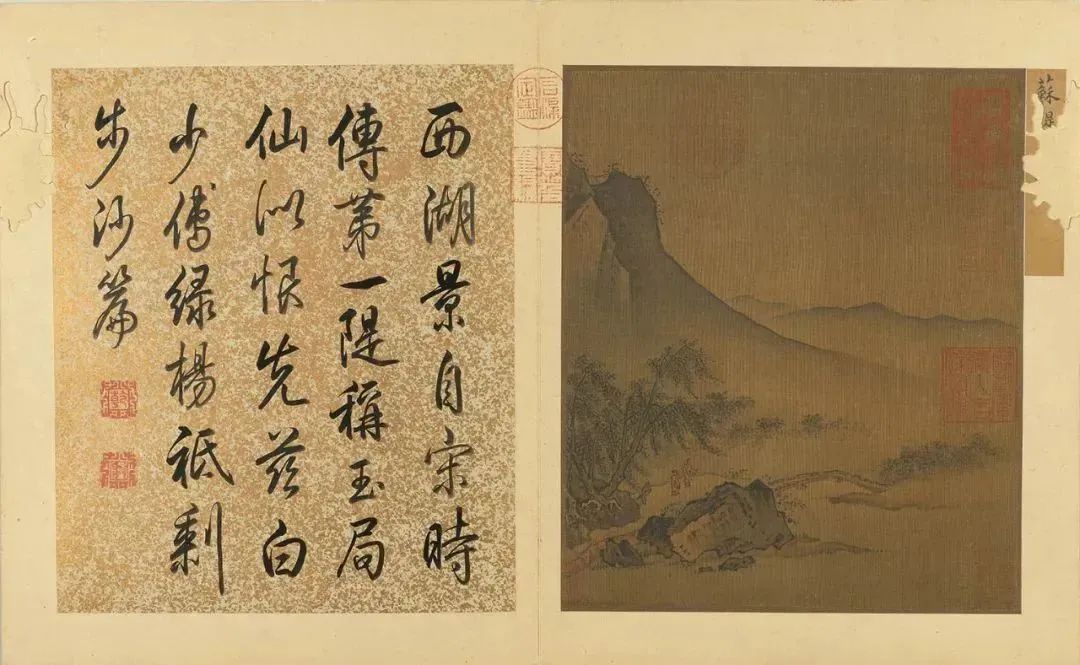 蘇
西湖景自宋時
傳第一隄稱玉局
仙似恨先茲白
少傅綠楊祗剩
步沙篇